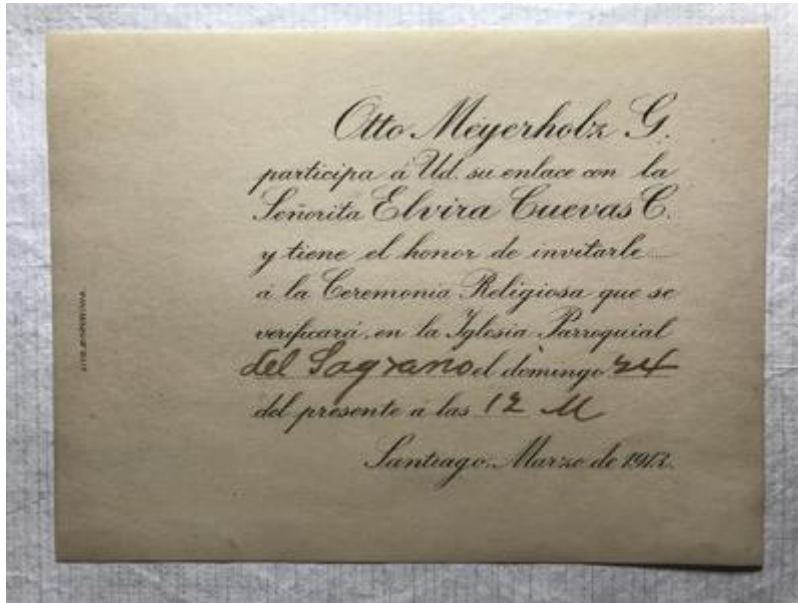 Otto Meyerholz G.
participa á Ud. su enlace con la
Señorita Elvira Cuevas C.
y tiene el honor de invitarle
á la Ceremonia Religiosa que se
verificará, en la Iglesia Parroquial
del Sagrario el domingo 24
del presente á las 12 M
Santiago, Marzo de 1912.